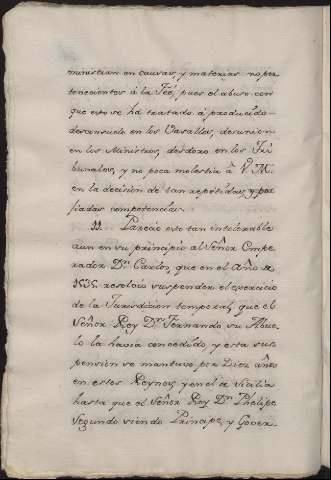 ministran en causas, y materias no per
tenecientes á la Feé, pues el abuso con
que esto se há tratado á producido
desconsuelo en los Vasallos, desunion
en los Ministros, desdoro en los Tri
bunales, y no poca molestia á V. M.
en la decision de tan repetidas, y por
fiadas competencias.
11. Pareció esto tan intolerable
aun en su principio al Señor Empe
rador Dn. Carlos, que en el año de
1535 resolvió suspender el exercicio
de la Jurisdicion temporal, que el
Señor Rey Dn. Fernando su Abue
lo la havia concedido, y esta sus
pension se mantuvo por Diez años
en estos Reynos, y en el de Sicilia
hasta que el Señor Rey Dn. Phelipe
Segundo siendo Principe, y Gover